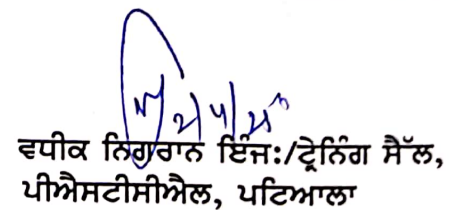 ਵਧੀਕ ਨਿਗਰਾਨ ਇੰਜ:/ਟ੍ਰੇਨਿੰਗ ਸੈੱਲ,
ਪੀਐਸਟੀਸੀਐਲ, ਪਟਿਆਲਾ